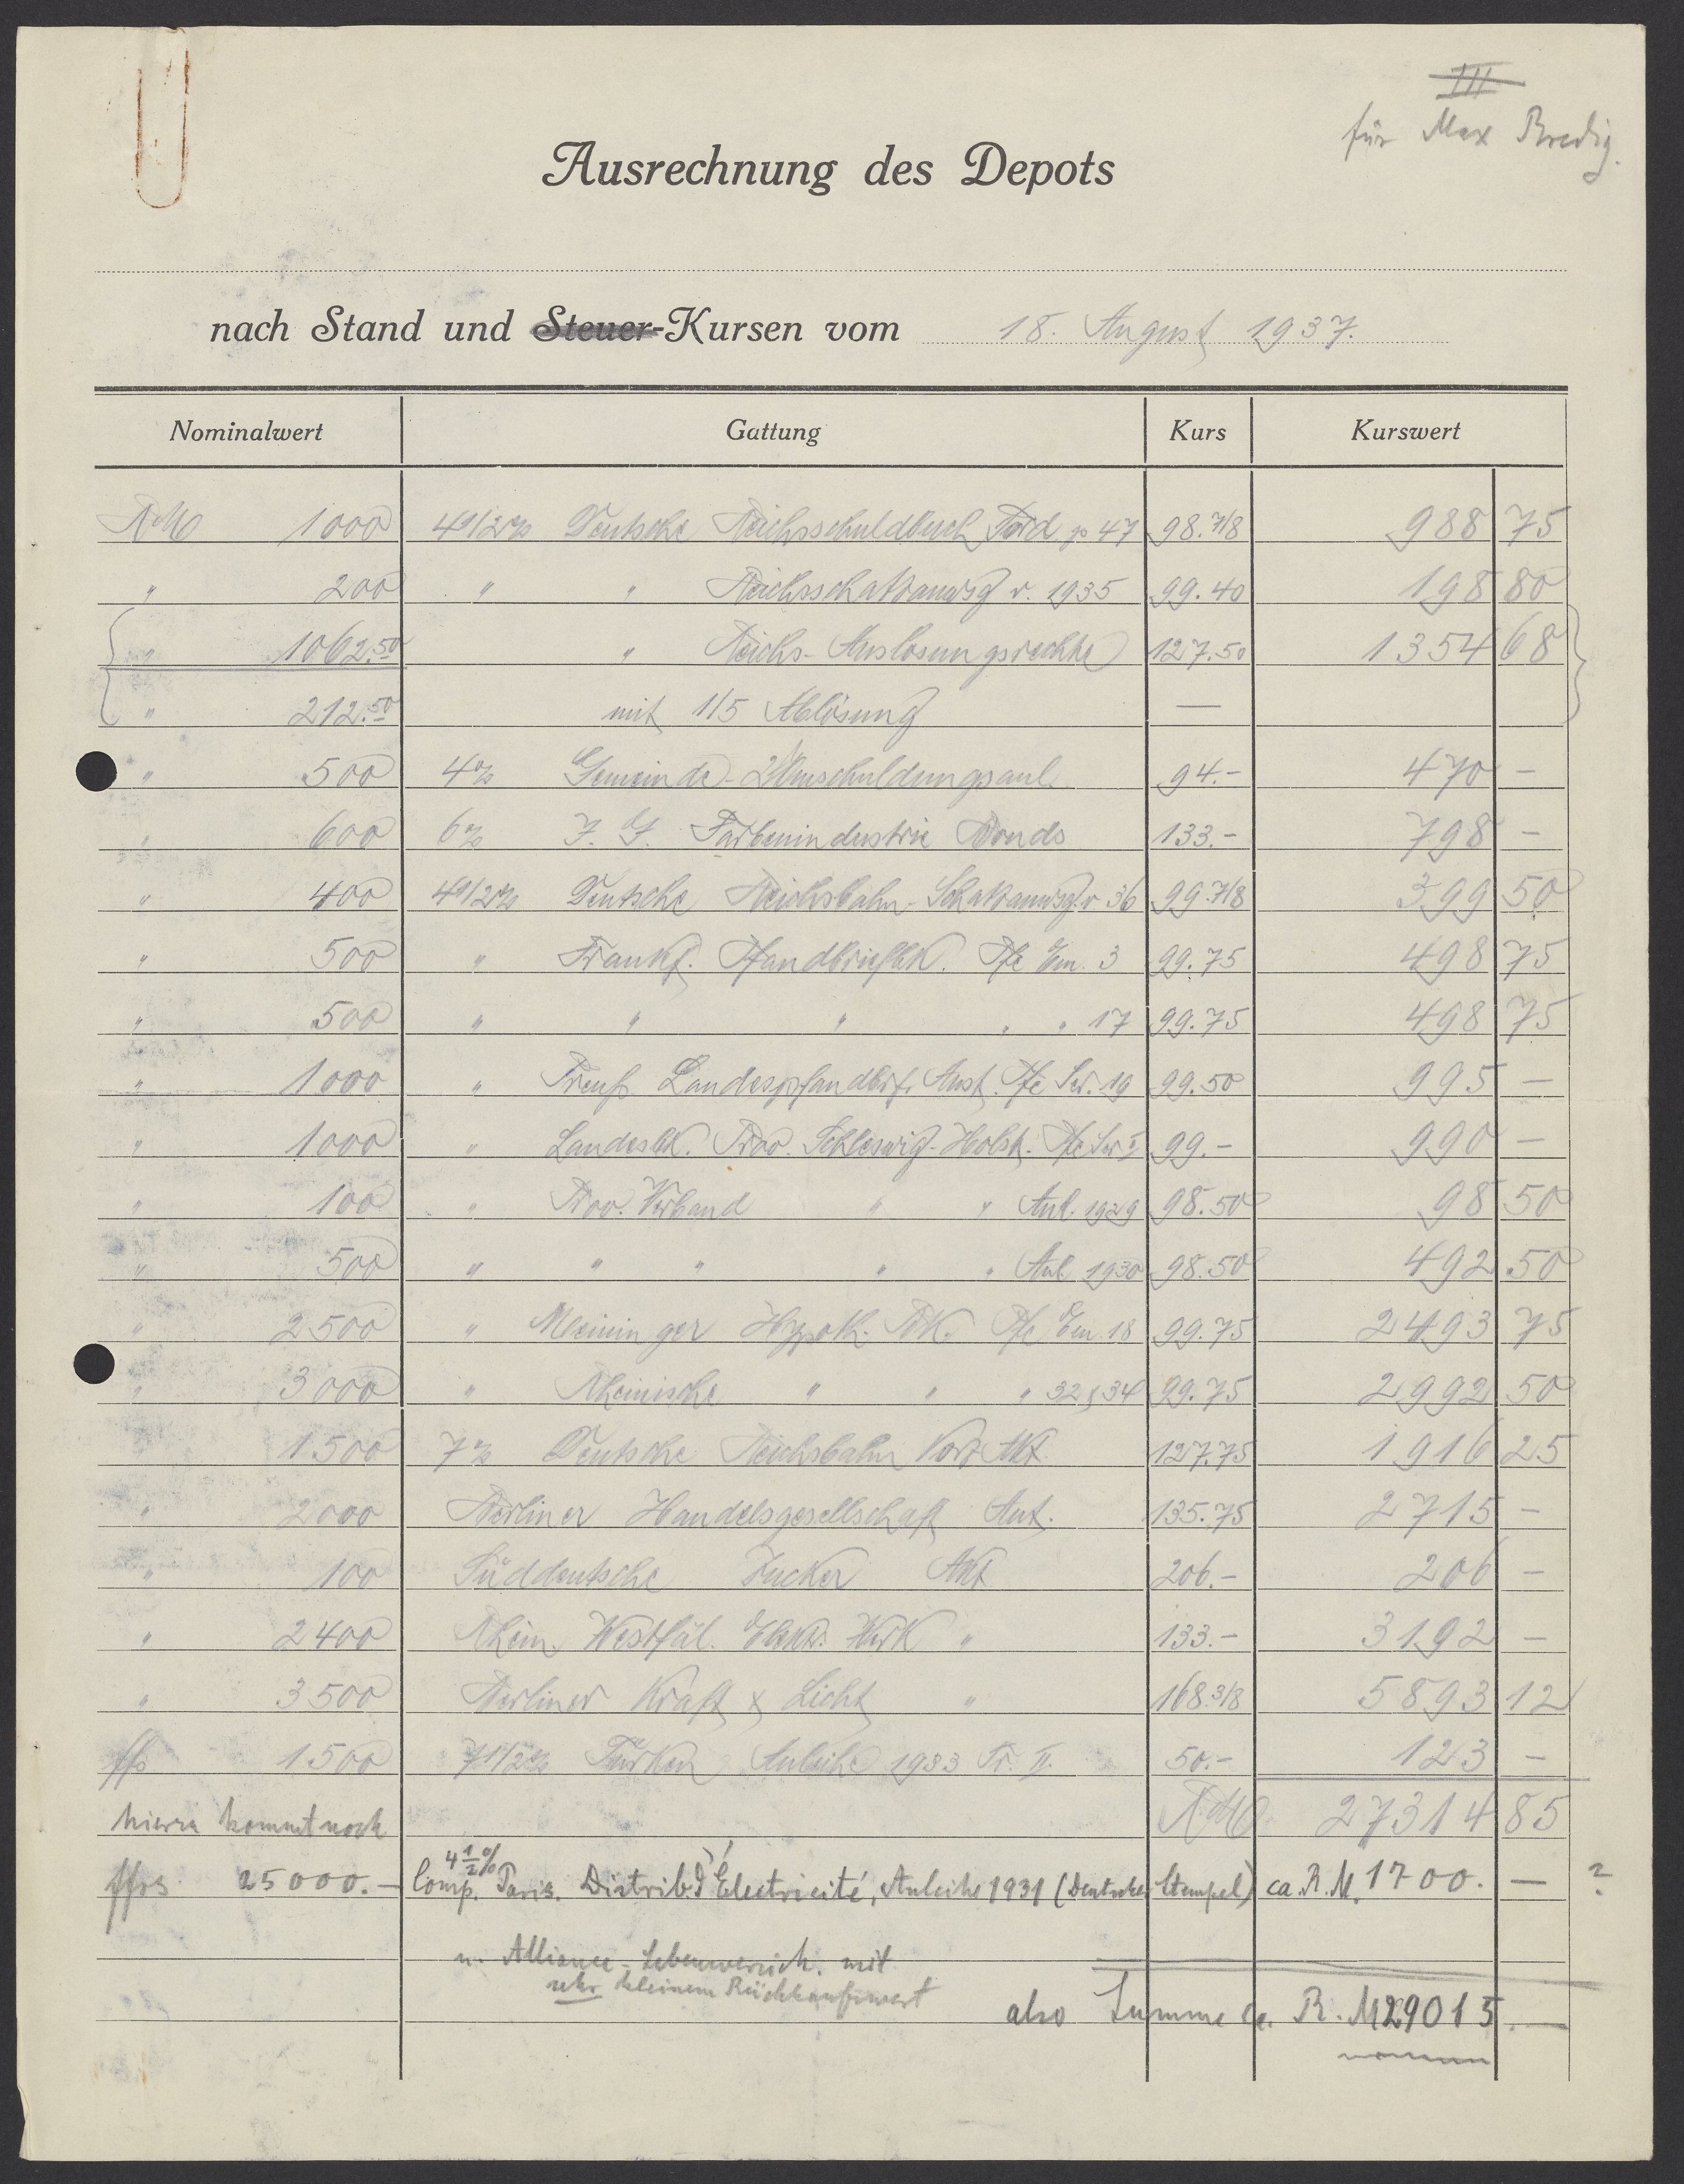 III
für Max Bredig.
Ausrechnung des Depots
nach Stand und Steuer-Kursen vom 18. August 1937.
Nominalwert Gattung Kurs Kurswert
RM 1000 4 1/2% Deutsche Reichsschuldbuch Ford p 47 98.7/8 988 75
" 200 " " Reichsschatzanwsg v. 1935 99.40 198 80
" 1062.50 " Reichs-Auslosungsrechte 127.50 1354 68
" 212.50 mit 1/5 Ablösung —
" 500 4% Gemeinde-Umschuldungsanl. 94.- 470 —
" 600 6% I. G. Farbenindustrie Bonds 133.- 798 —
" 400 4 1/2% Deutsche Reichsbahn-Schatzanwsg v 36 99.7/8 399 50
" 500 " Frankf. Pfandbriefbk. Pfe Em. 3 99.75 498 75
" 500 " " " " " 17 99.75 498 75
" 1000 " Preuß. Landespfandbrf. Anst. Pfe Ser. 19 99.50 995 —
" 1000 " Landesbk. Prov. Schleswig-Holst. Pfe Ser I 99.- 990 —
" 100 " Prov. Verband " " Anl. 1929 98.50 98 50
" 500 " " " " " Anl. 1930 98.50 492 50
" 2500 " Meininger Hypoth. Bk. Pfe Em 18 99.75 2493 75
" 3000 " Rheinische " " " 32 & 34 99.75 2992 50
1500 7% Deutsche Reichsbahn Vorz Akt 127.75 1916 25
" 2000 Berliner Handelsgesellschaft Ant. 135.75 2715 —
" 100 Süddeutsche Zucker Akt 206.- 206 —
" 2400 Rhein. Westfäl. Elektr. Werk " 133.- 3192 —
" 3500 Berliner Kraft & Licht " 168.3/8 5893 12
ffs 1500 7 1/2% Türken Anleihe 1933 Tr. II. 50.- 123 —
RM 27314 85
hierzu kommt noch
ffrs 25000.— 4 1/2% Comp. Paris. Distrib. d'Électricité, Anleihe 1931 (Deutscher Stempel) ca. R.M. 1700. — ?
u. Alliance-Lebensversich. mit
sehr kleinem Rückkaufswert
also Summe ca. R.M 29015.—